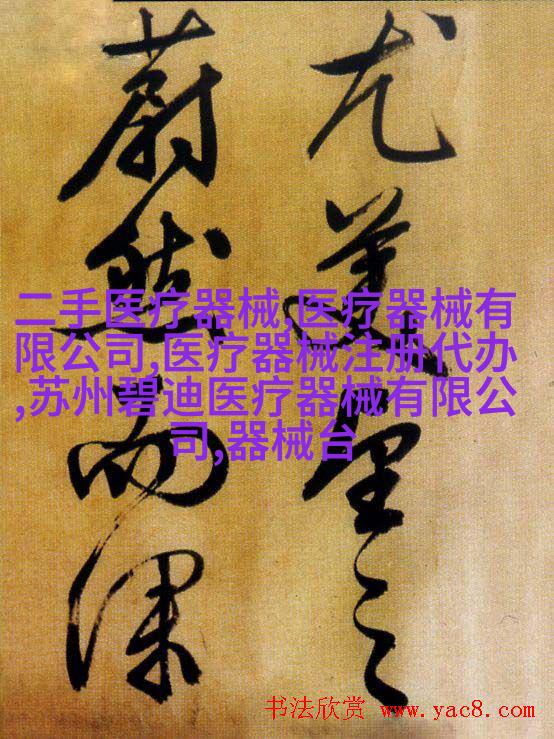 尤美望之
蔚然而深
二手医疗器械,医疗器械有
限公司,医疗器械注册代办
,苏州碧迪医疗器械有限公
司,器械台
书法欣赏 www.yac8.com